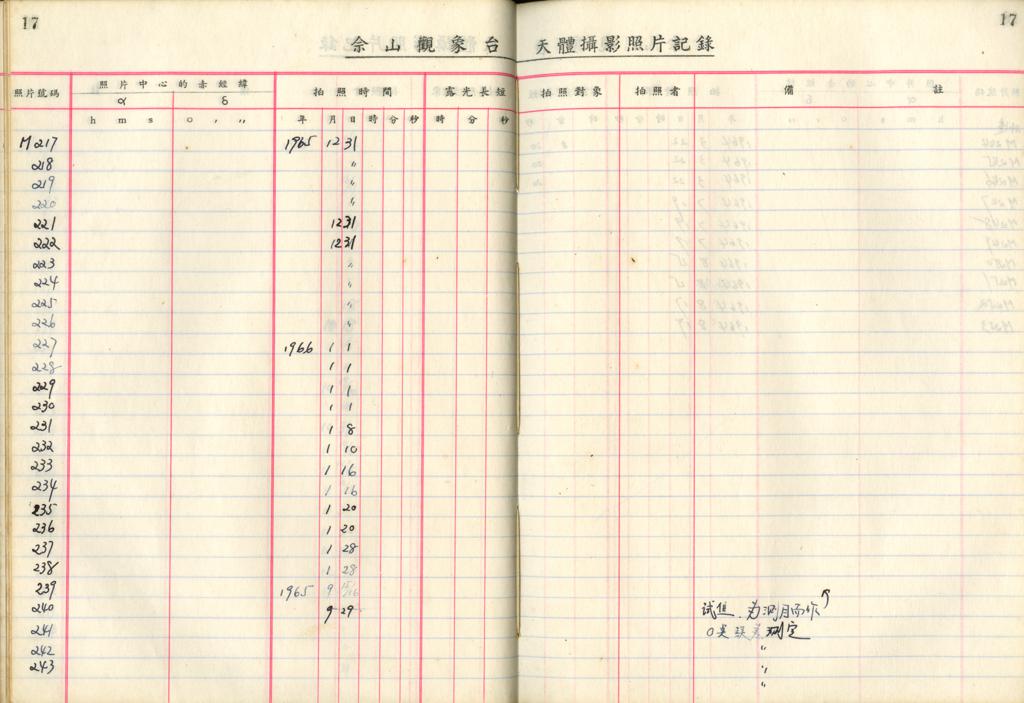 17
17
佘山觀象台 天體攝影照片記錄
照片號碼 照片中心的赤經緯 拍照時間 露光長短 拍照對象 拍照者 備註
α δ
h m s o ′ ″ 年 月 日 時 分 秒 時 分 秒
M217 1965 12 31
218 〃
219 〃
220 〃
221 12 31
222 12 31
223 〃
224 〃
225 〃
226 〃
227 1966 1 1
228 1 1
229 1 1
230 1 1
231 1 8
232 1 10
233 1 16
234 1 16
235 1 20
236 1 20
237 1 28
238 1 28
239 1965 9 15/16
240 9 29 试 为测月而作
241 0类误差测定
242 〃
243 〃
〃